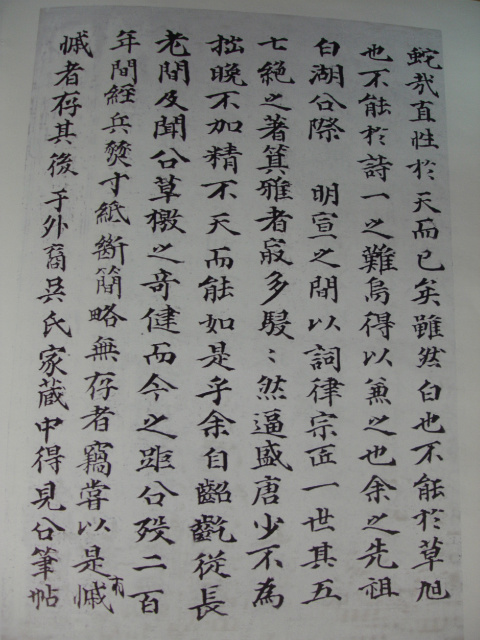 蛇哉直性於天而已矣雖然白也不能於草旭
也不能於詩一之難烏得以兼之也余之先祖
白湖公際 明宣之間以詞律宗匠一世其五
七絶之著箕雅者㝡多駸〻然逼盛唐少不為
拙晩不加精不天而能如是乎余自齠齔從長
老間及聞公草檄之奇健而今之距公歿二百
年間經兵燹寸紙斷簡略無存者竊嘗以是有慽
慽者存其後于外裔吳氏家蔵中得見公筆帖